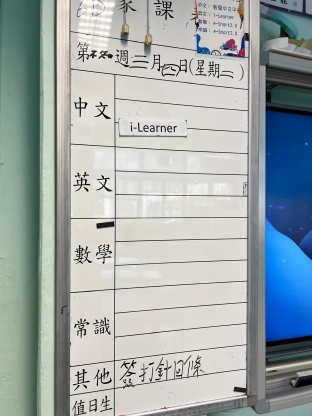 家課
第 週三月四日(星期二)
中文
i-Learner
英文
數學
常識
其他 簽打針回條
值日生